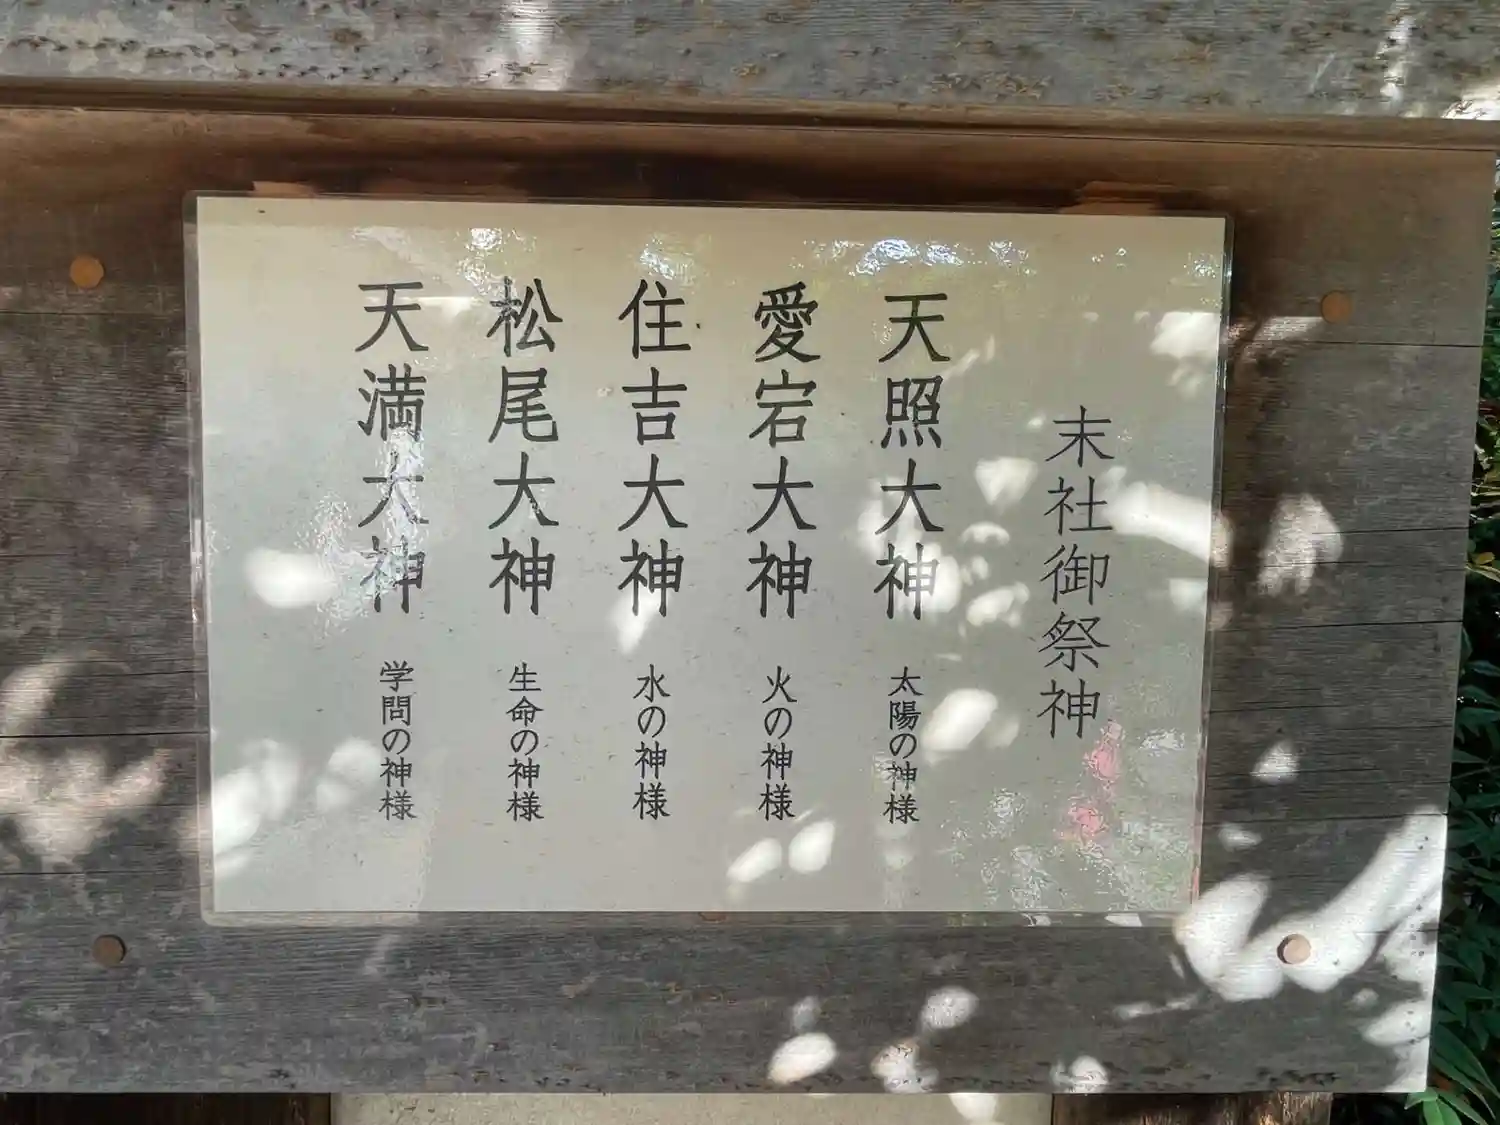 末社御祭神
天照大神 太陽の神様
愛宕大神 火の神様
住吉大神 水の神様
松尾大神 生命の神様
天満大神 学問の神様